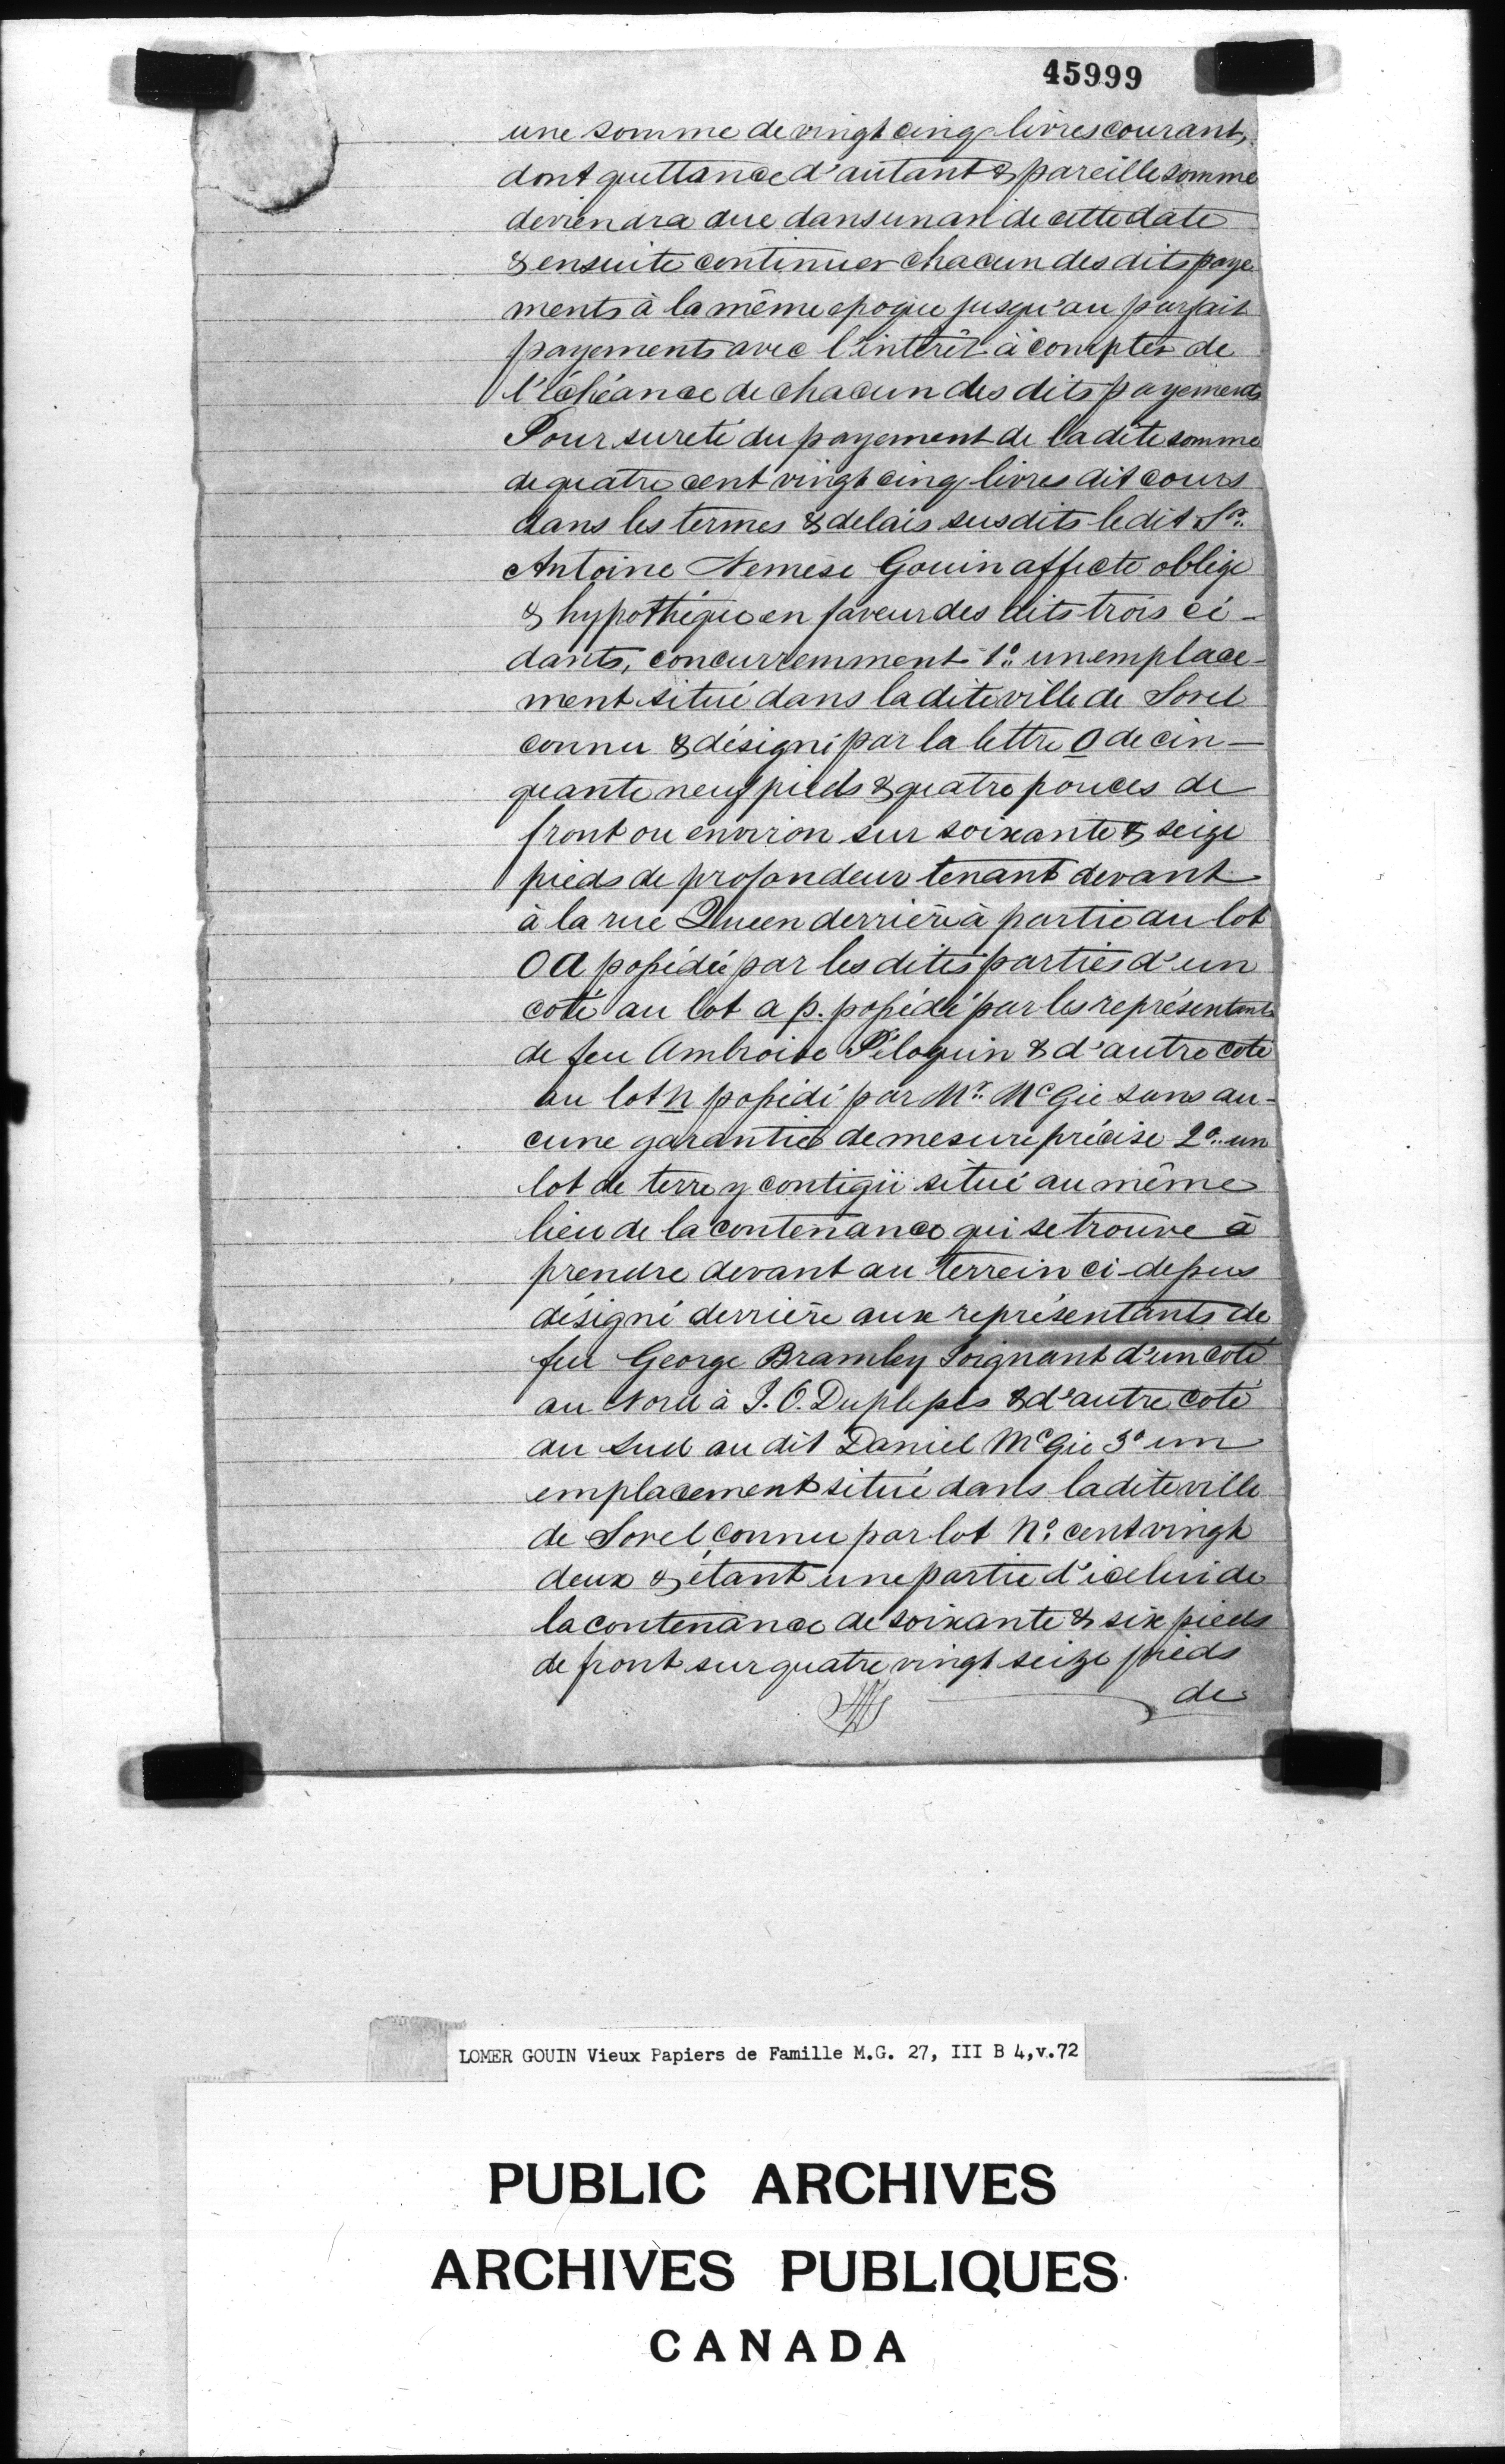 45999
une somme de vingt cinq livres courant,
dont quittance d'autant & pareille somme
deviendra due dans un an de cette date
& ensuite continuer chacun des dits paye
ments à la même epoque jusqu'au parfait
payements avec l'intérêt à compter de
l'échéance de chacun des dits payements
Pour sureté du payement de la dite somme
de quatre cent vingt cinq livres dit cours
dans les termes & delais susdits le dit Sr.
Antoine Nemèse Gouin affecte oblige
& hypothéque en faveur des dits trois cé-
dants, concurremment 1o. un emplace-
ment situé dans la dite ville de Sorel
connu & désigné par la lettre O de cin-
quante neuf pieds & quatre pouces de
front ou environ sur soixante & seize
pieds de profondeur tenant devant
à la rue Queen derrière à partie du lot
O a possédée par les dites parties d'un
coté au lot a p. possédé par les représentants
de feu Ambroise Péloquin & d'autre coté
au lot n possédé par Mr. McGie sans au-
cune garantie de mesure précise 2o. un
lot de terre y contigü situé au même
lieu de la contenance qui se trouve à
prendre devant au terrein ci-dessus
désigné derrière aux représentants de
feu George Bramley Joignant d'un coté
au Nord à J. O. Duplessis & d'autre coté
au Sud au dit Daniel McGie 3o un
emplacement situé dans la dite ville
de Sorel connu par lot No. cent vingt
deux & étant une partie d'icelui de
la contenance de soixante & six pieds
de front sur quatre vingt seize pieds
de
LOMER GOUIN Vieux Papiers de Famille M.G. 27, III B 4,v.72
PUBLIC ARCHIVES
ARCHIVES PUBLIQUES
CANADA